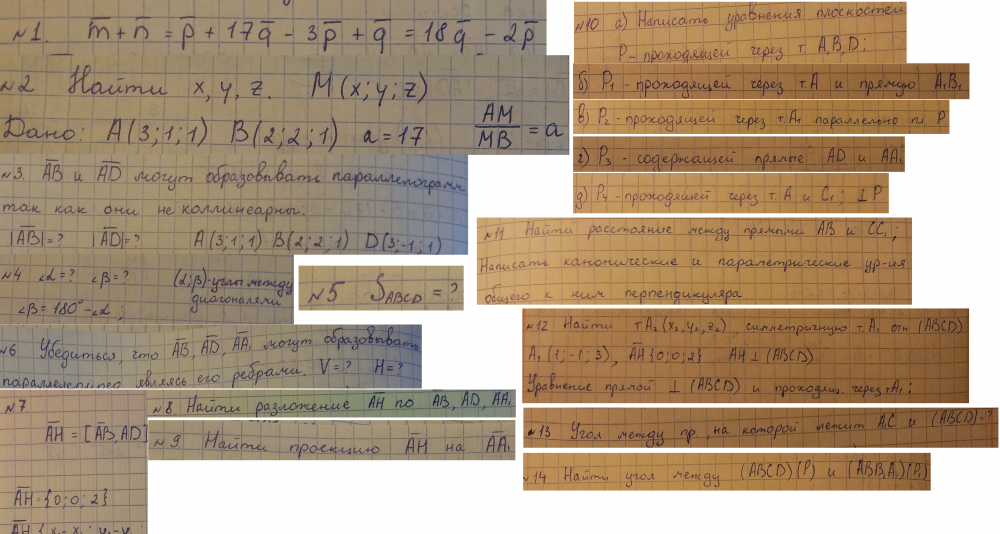 №1. m̅+n̅ = p̅ + 17q̅ - 3p̅ + q̅ = 18q̅ - 2p̅
№2 Найти x, y, z. M(x; y; z)
Дано: A(3;1;1) B(2;2;1) a=17 AM/MB = a
№3. A̅B̅ и A̅D̅ могут образовывать параллелограмм
так как они не коллинеарны.
|A̅B̅|=? |A̅D̅|=? A(3;1;1) B(2;2;1) D(3;-1;1)
№4 ∠α=? ∠β=? (α;β)-углы между
диагоналями
∠β=180°-∠α;
№5 S_ABCD = ?
№6 Убедиться, что A̅B̅, A̅D̅, A̅A̅₁ могут образовывать
являясь его ребрами. V=? H=?
№7
A̅H̅ = [A̅B̅, A̅D̅]
A̅H̅={0;0;2}
№8 Найти разложение A̅H̅ по A̅B̅, A̅D̅, A̅A̅₁
№9 Найти проекцию A̅H̅ на A̅A̅₁
№10 а) Написать уравнения плоскостей
P-проходящей через т. A, B, D;
б) P₁-проходящей через т.A и прямую A₁B₁
в) P₂-проходящей через т.A₁ параллельно пл P
г) P₃-содержащей прямые AD и AA₁
д) P₄-проходящей через т.A и C₁; ⊥P
№11 Найти расстояние между прямыми AB и CC₁;
Написать канонические и параметрические ур-ия
общего к ним перпендикуляра
№12 Найти т.A₂(x₂,y₂,z₂), симметричную т.A₁ отн (ABCD)
A₁(1;-1;3), A̅H̅{0;0;2} AH⊥(ABCD)
Уравнение прямой ⊥(ABCD) и проходящ. через тA₁;
№13 Угол между пр, на которой лежит A₁C и (ABCD)-?
№14 Найти угол между (ABCD)(P) и (ABB₁A₁)(P₁)